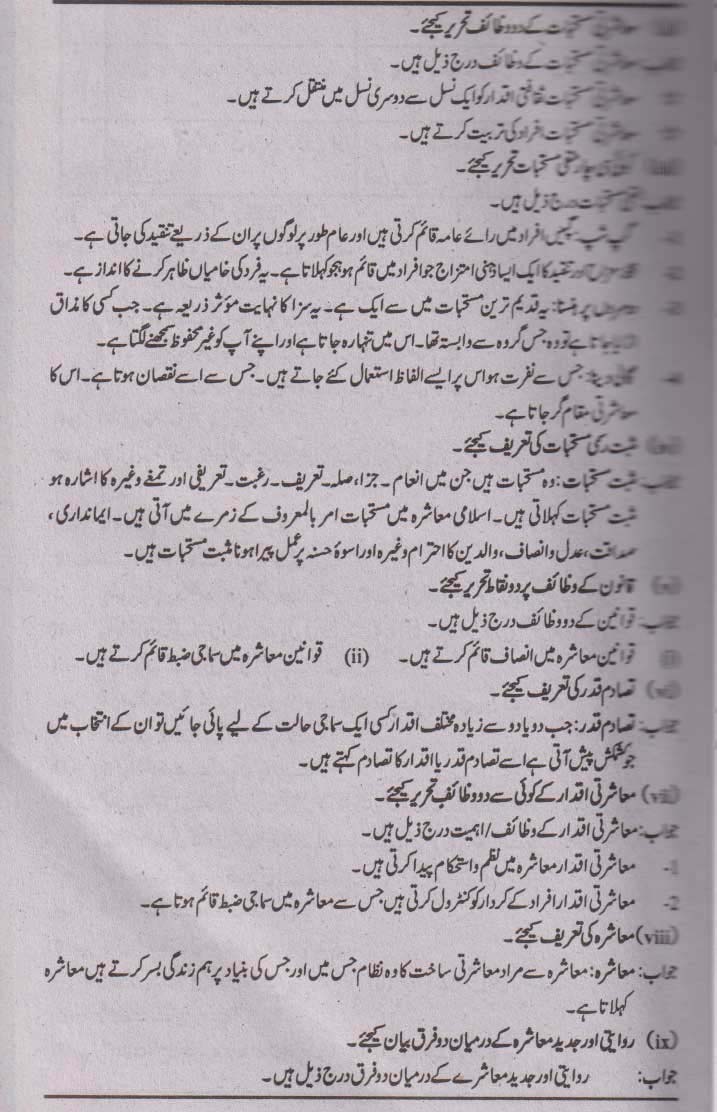 معاشرتی مستحبات کے دو وظائف تحریر کیجئے۔
معاشرتی مستحبات کے وظائف درج ذیل ہیں۔
معاشرتی مستحبات ثقافتی اقدار کو ایک نسل سے دوسری نسل میں منتقل کرتے ہیں۔
معاشرتی مستحبات افراد کی تربیت کرتے ہیں۔
(iii) منفی مستحبات تحریر کیجئے۔
مستحبات درج ذیل ہیں۔
گپ شپ: گپیں افراد میں رائے عامہ قائم کرتی ہیں اور عام طور پر لوگوں پر ان کے ذریعے تنقید کی جاتی ہے۔
اور تنقید کا ایک ایسا ذہنی امتزاج جو افراد میں قائم ہو ہجو کہلاتا ہے۔ یہ فرد کی خامیاں ظاہر کرنے کا انداز ہے۔
پر ہنسنا: یہ قدیم ترین مستحبات میں سے ایک ہے۔ یہ سزا کا نہایت مؤثر ذریعہ ہے۔ جب کسی کا مذاق
جاتا ہے تو وہ جس گروہ سے وابستہ تھا۔ اس میں تنہا رہ جاتا ہے اور اپنے آپ کو غیر محفوظ سمجھنے لگتا ہے۔
4- گالی دینا: جس سے نفرت ہو اس پر ایسے الفاظ استعمال کئے جاتے ہیں۔ جس سے اسے نقصان ہوتا ہے۔ اس کا
معاشرتی مقام گر جاتا ہے۔
(iv) مثبت رسمی مستحبات کی تعریف کیجئے۔
جواب: مثبت مستحبات: وہ مستحبات ہیں جن میں انعام۔ جزا، صلہ۔ تعریف۔ رغبت۔ تعریفی اور تمغے وغیرہ کا اشارہ ہو
مثبت مستحبات کہلاتی ہیں۔ اسلامی معاشرہ میں مستحبات امر بالمعروف کے زمرے میں آتی ہیں۔ ایمانداری،
صداقت، عدل و انصاف، والدین کا احترام وغیرہ اور اسوۂ حسنہ پر عمل پیرا ہونا مثبت مستحبات ہیں۔
(v) قانون کے وظائف پر دو نقاط تحریر کیجئے۔
جواب: قوانین کے دو وظائف درج ذیل ہیں۔
(i) قوانین معاشرہ میں انصاف قائم کرتے ہیں۔ (ii) قوانین معاشرہ میں سماجی ضبط قائم کرتے ہیں۔
(vi) تصادم قدر کی تعریف کیجئے۔
جواب: تصادم قدر: جب دو یا دو سے زیادہ مختلف اقدار کسی ایک سماجی حالت کے لیے پائی جائیں تو ان کے انتخاب میں
جو کشمکش پیش آتی ہے اسے تصادم قدر یا اقدار کا تصادم کہتے ہیں۔
(vii) معاشرتی اقدار کے کوئی سے دو وظائف تحریر کیجئے۔
جواب: معاشرتی اقدار کے وظائف/اہمیت درج ذیل ہیں۔
1- معاشرتی اقدار معاشرہ میں نظم و استحکام پیدا کرتی ہیں۔
2- معاشرتی اقدار افراد کے کردار کو کنٹرول کرتی ہیں جس سے معاشرہ میں سماجی ضبط قائم ہوتا ہے۔
(viii) معاشرہ کی تعریف کیجئے۔
جواب: معاشرہ: معاشرہ سے مراد معاشرتی ساخت کا وہ نظام جس میں اور جس کی بنیاد پر ہم زندگی بسر کرتے ہیں معاشرہ
کہلاتا ہے۔
(ix) روایتی اور جدید معاشرہ کے درمیان دو فرق بیان کیجئے۔
جواب: روایتی اور جدید معاشرے کے درمیان دو فرق درج ذیل ہیں۔